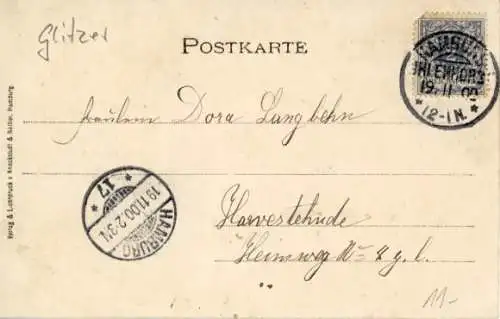 Glitzer
POSTKARTE
HAMBURG
UHLENHORST
19.11.00
*12-1N.*
Fräulein Dora Langbehn
* 17 *
19.11.00.2-3N.
HAMBURG
Harvestehude
Heimweg No
11.-
Verlag & Lichtdruck v. Knackstedt & Näther, Hamburg.